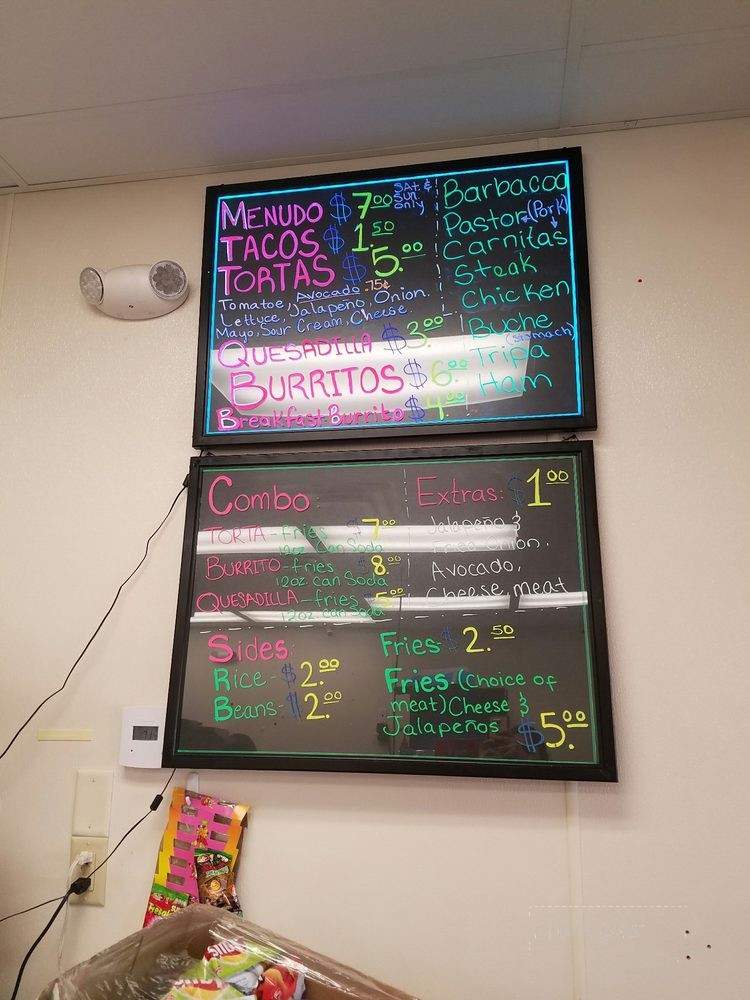 MENUDO $7.00 SAt & Sun only
TACOS $1.50
TORTAS $5.00
Tomatoe, Avocado .75¢
Lettuce, Jalapeño, Onion.
Mayo, Sour Cream, Cheese
QUESADILLA $3.00
BURRITOS $6.00
Breakfast Burrito $4.00
Barbacoa
Pastor (Pork)
Carnitas
Steak
Chicken
Buche
(Stomach)
Tripa
Ham
Combo:
TORTA - Fries $7.00
12oz. Can Soda
BURRITO - fries $8.00
12oz. can Soda
QUESADILLA - fries $5.00
12oz. Can Soda
Extras: $1.00
Jalapeño &
Fried Onion.
Avocado,
Cheese, meat
Sides:
Rice - $2.00
Beans - $2.00
Fries $2.50
Fries - (Choice of
meat) Cheese &
Jalapeños $5.00